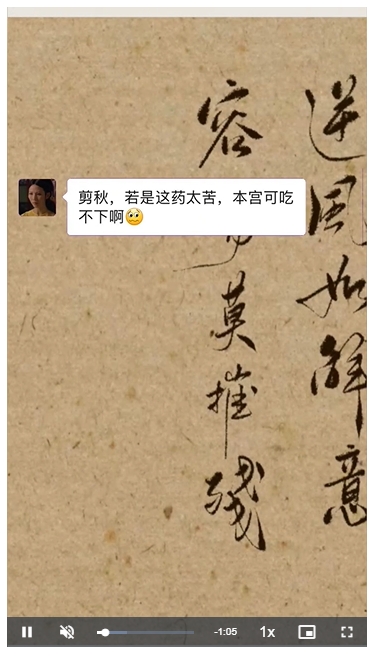 逆風如解意
容莫摧殘
剪秋，若是这药太苦，本宫可吃
不下啊🥺
-1:05 1x